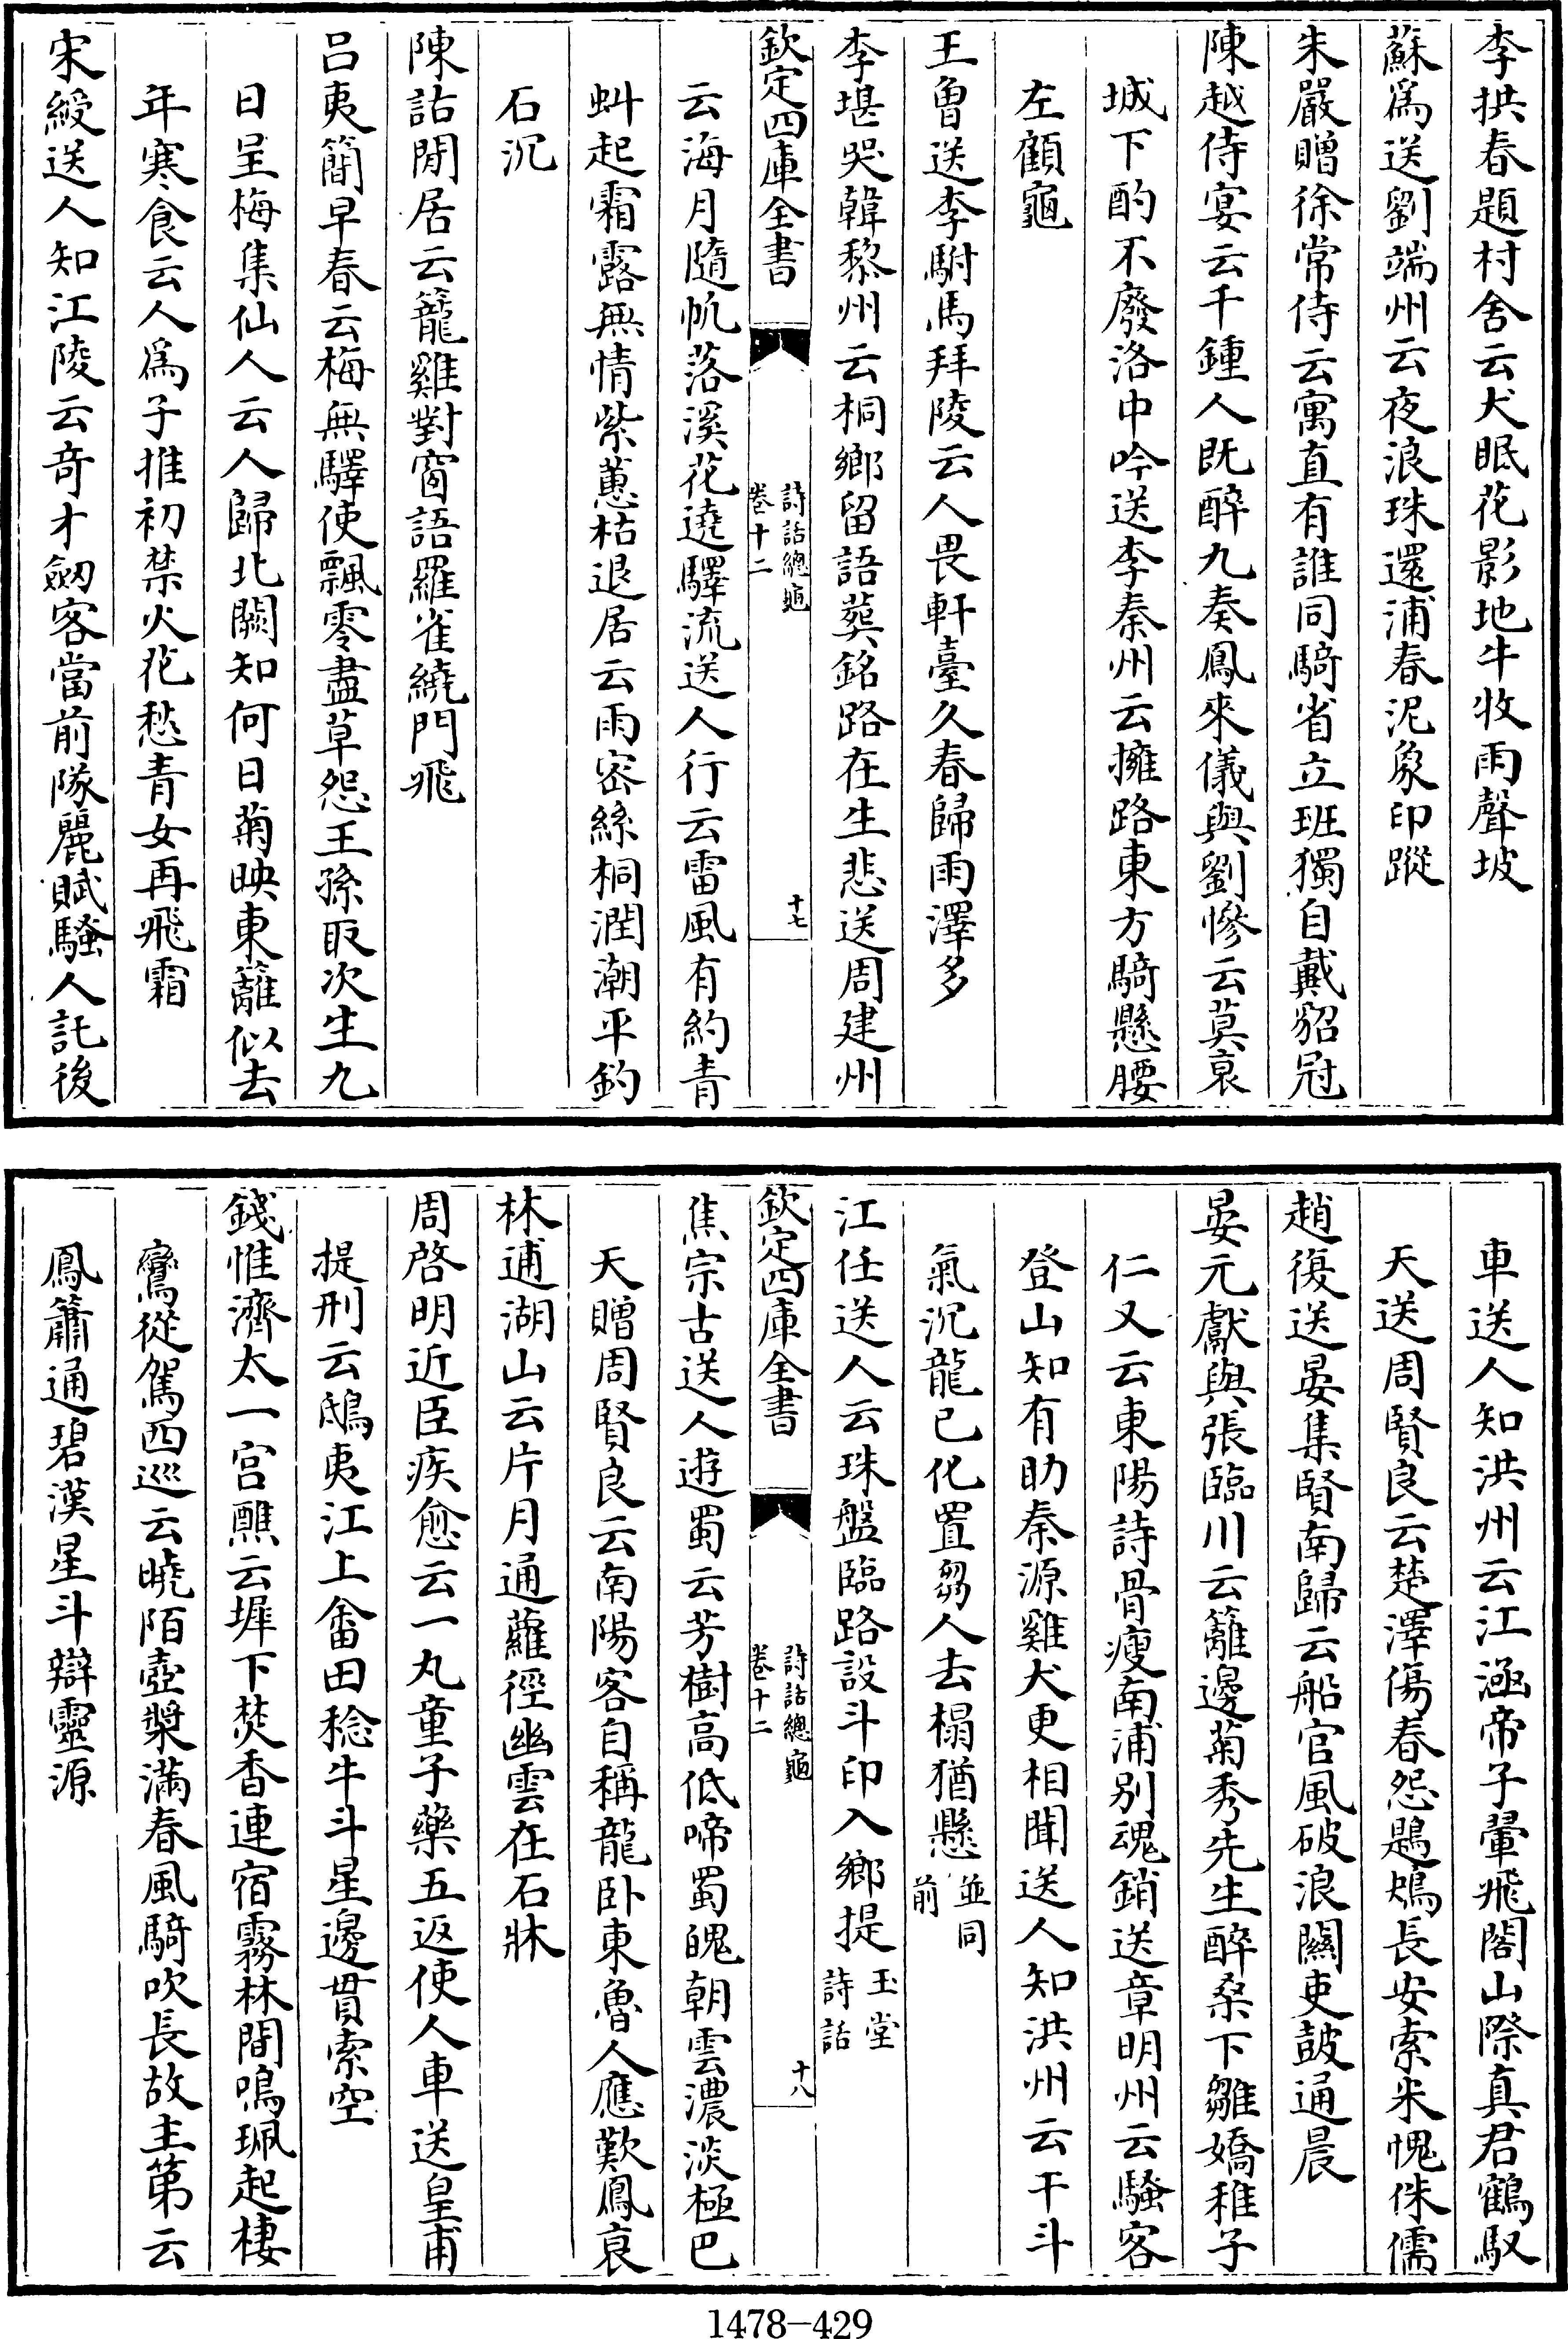 李拱春題村舍云犬眠花影地牛牧雨聲坡
蘇爲送劉端州云夜浪珠還浦春泥象印蹤
朱嚴贈徐常侍云寓直有誰同騎省立班獨自戴貂冠
陳越侍宴云千鍾人既醉九奏鳳來儀與劉慘云莫哀
城下酌不廢洛中吟送李秦州云擁路東方騎懸腰
左顧龜
王魯送李駙馬拜陵云人畏軒臺久春歸雨澤多
李堪哭韓黎州云桐鄉留語葬銘路在生悲送周建州
欽定四庫全書
詩話總龜
卷十二
十七
云海月隨帆落溪花遶驛流送人行云雷風有約青
虯起霜露無情紫蕙枯退居云雨密絲桐潤潮平釣
石沉
陳詁閒居云籠雞對窗語羅雀繞門飛
呂夷簡早春云梅無驛使飄零盡草怨王孫取次生九
日呈梅集仙人云人歸北闕知何日菊映東籬似去
年寒食云人爲子推初禁火花愁青女再飛霜
宋綬送人知江陵云奇才劒客當前隊麗賦騷人託後
車送人知洪州云江涵帝子翬飛閣山際真君鶴馭
天送周賢良云楚澤傷春怨鶗鴂長安索米愧侏儒
趙復送晏集賢南歸云船官風破浪關吏鼓通晨
晏元獻與張臨川云籬邊菊秀先生醉桑下雛嬌稚子
仁又云東陽詩骨瘦南浦别魂銷送章明州云騷客
登山知有助秦源雞犬更相聞送人知洪州云干斗
氣沉龍已化置芻人去榻猶懸並同前
江任送人云珠盤臨路設斗印入鄉提玉堂詩話
欽定四庫全書
詩話總龜
卷十二
十八
焦宗古送人遊蜀云芳樹高低啼蜀魄朝雲濃淡極巴
天贈周賢良云南陽客自稱龍卧東魯人應歎鳳衰
林逋湖山云片月通蘿徑幽雲在石牀
周啓明近臣疾愈云一丸童子藥五返使人車送皇甫
提刑云鴟夷江上畬田稔牛斗星邊貫索空
錢惟濟太一宫醮云墀下焚香連宿霧林間鳴珮起棲
鸞從駕西巡云曉陌壺漿滿春風騎吹長故主第云
鳳簫通碧漢星斗辯靈源
1478-429